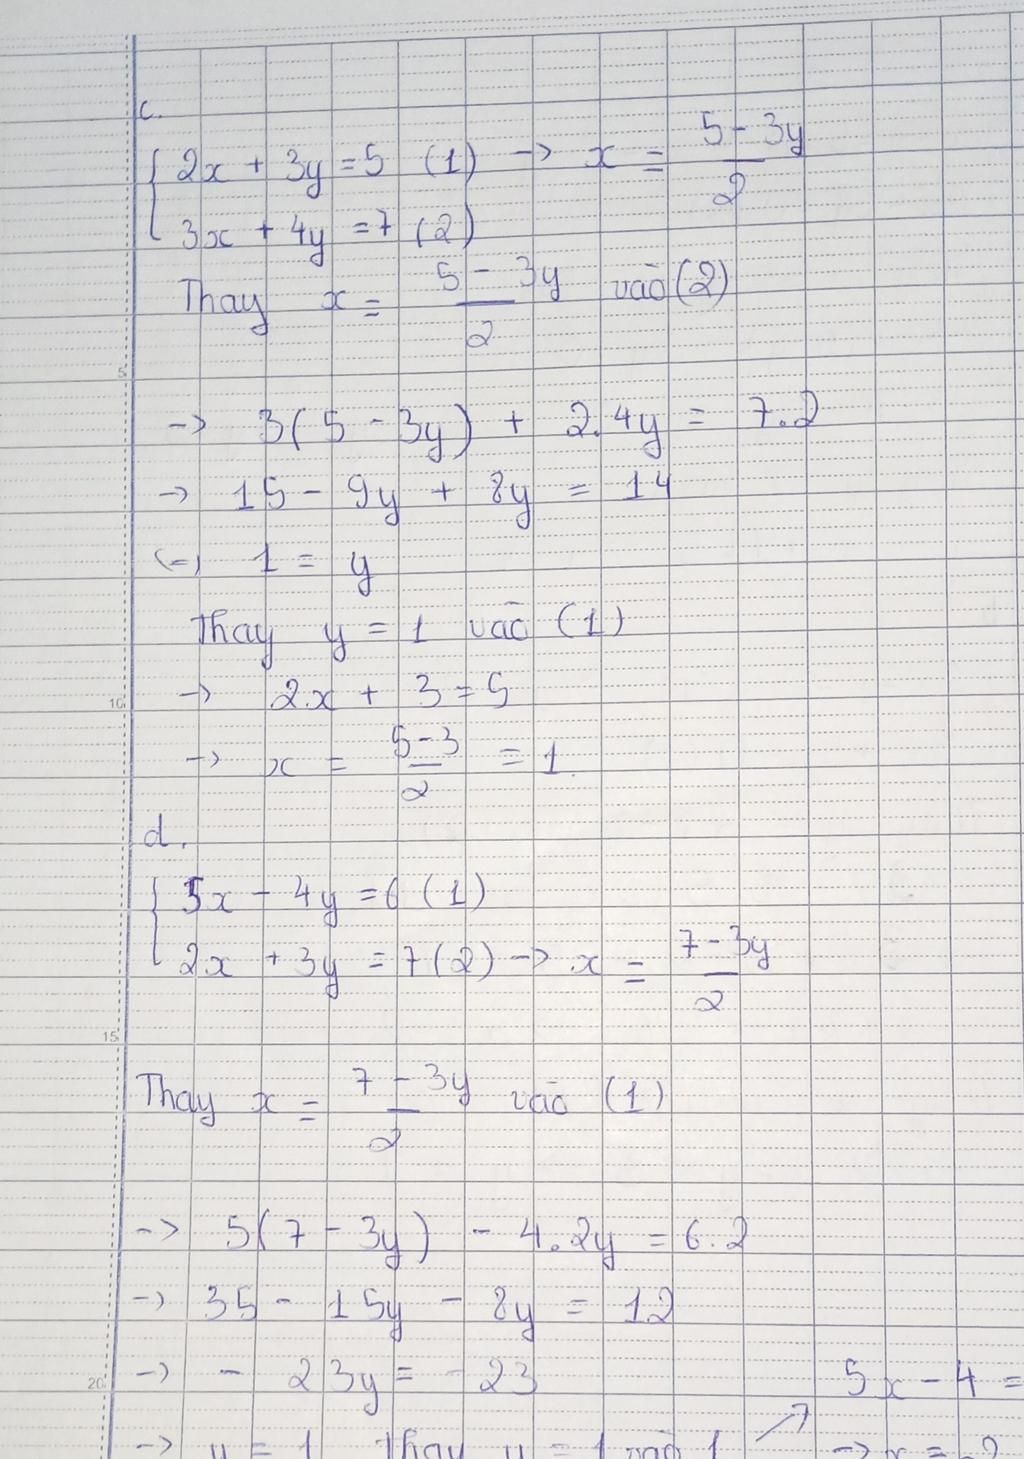 c.
{ 2x + 3y = 5 (1) -> x = (5 - 3y)/2
3x + 4y = 7 (2)
Thay x = (5 - 3y)/2 vào (2)
5
-> 3(5 - 3y) + 2.4y = 7.2
-> 15 - 9y + 8y = 14
(-) 1 = y
Thay y = 1 vào (1)
10 -> 2x + 3 = 5
-> x = (5-3)/2 = 1
d.
{ 5x - 4y = 6 (1)
2x + 3y = 7 (2) -> x = (7 - 3y)/2
15
Thay x = (7 - 3y)/2 vào (1)
-> 5(7 - 3y) - 4.2y = 6.2
-> 35 - 15y - 8y = 12
20 -> - 23y = - 23 5x - 4 =
-> y = 1 Thay y = 1 vào 1 -> x =